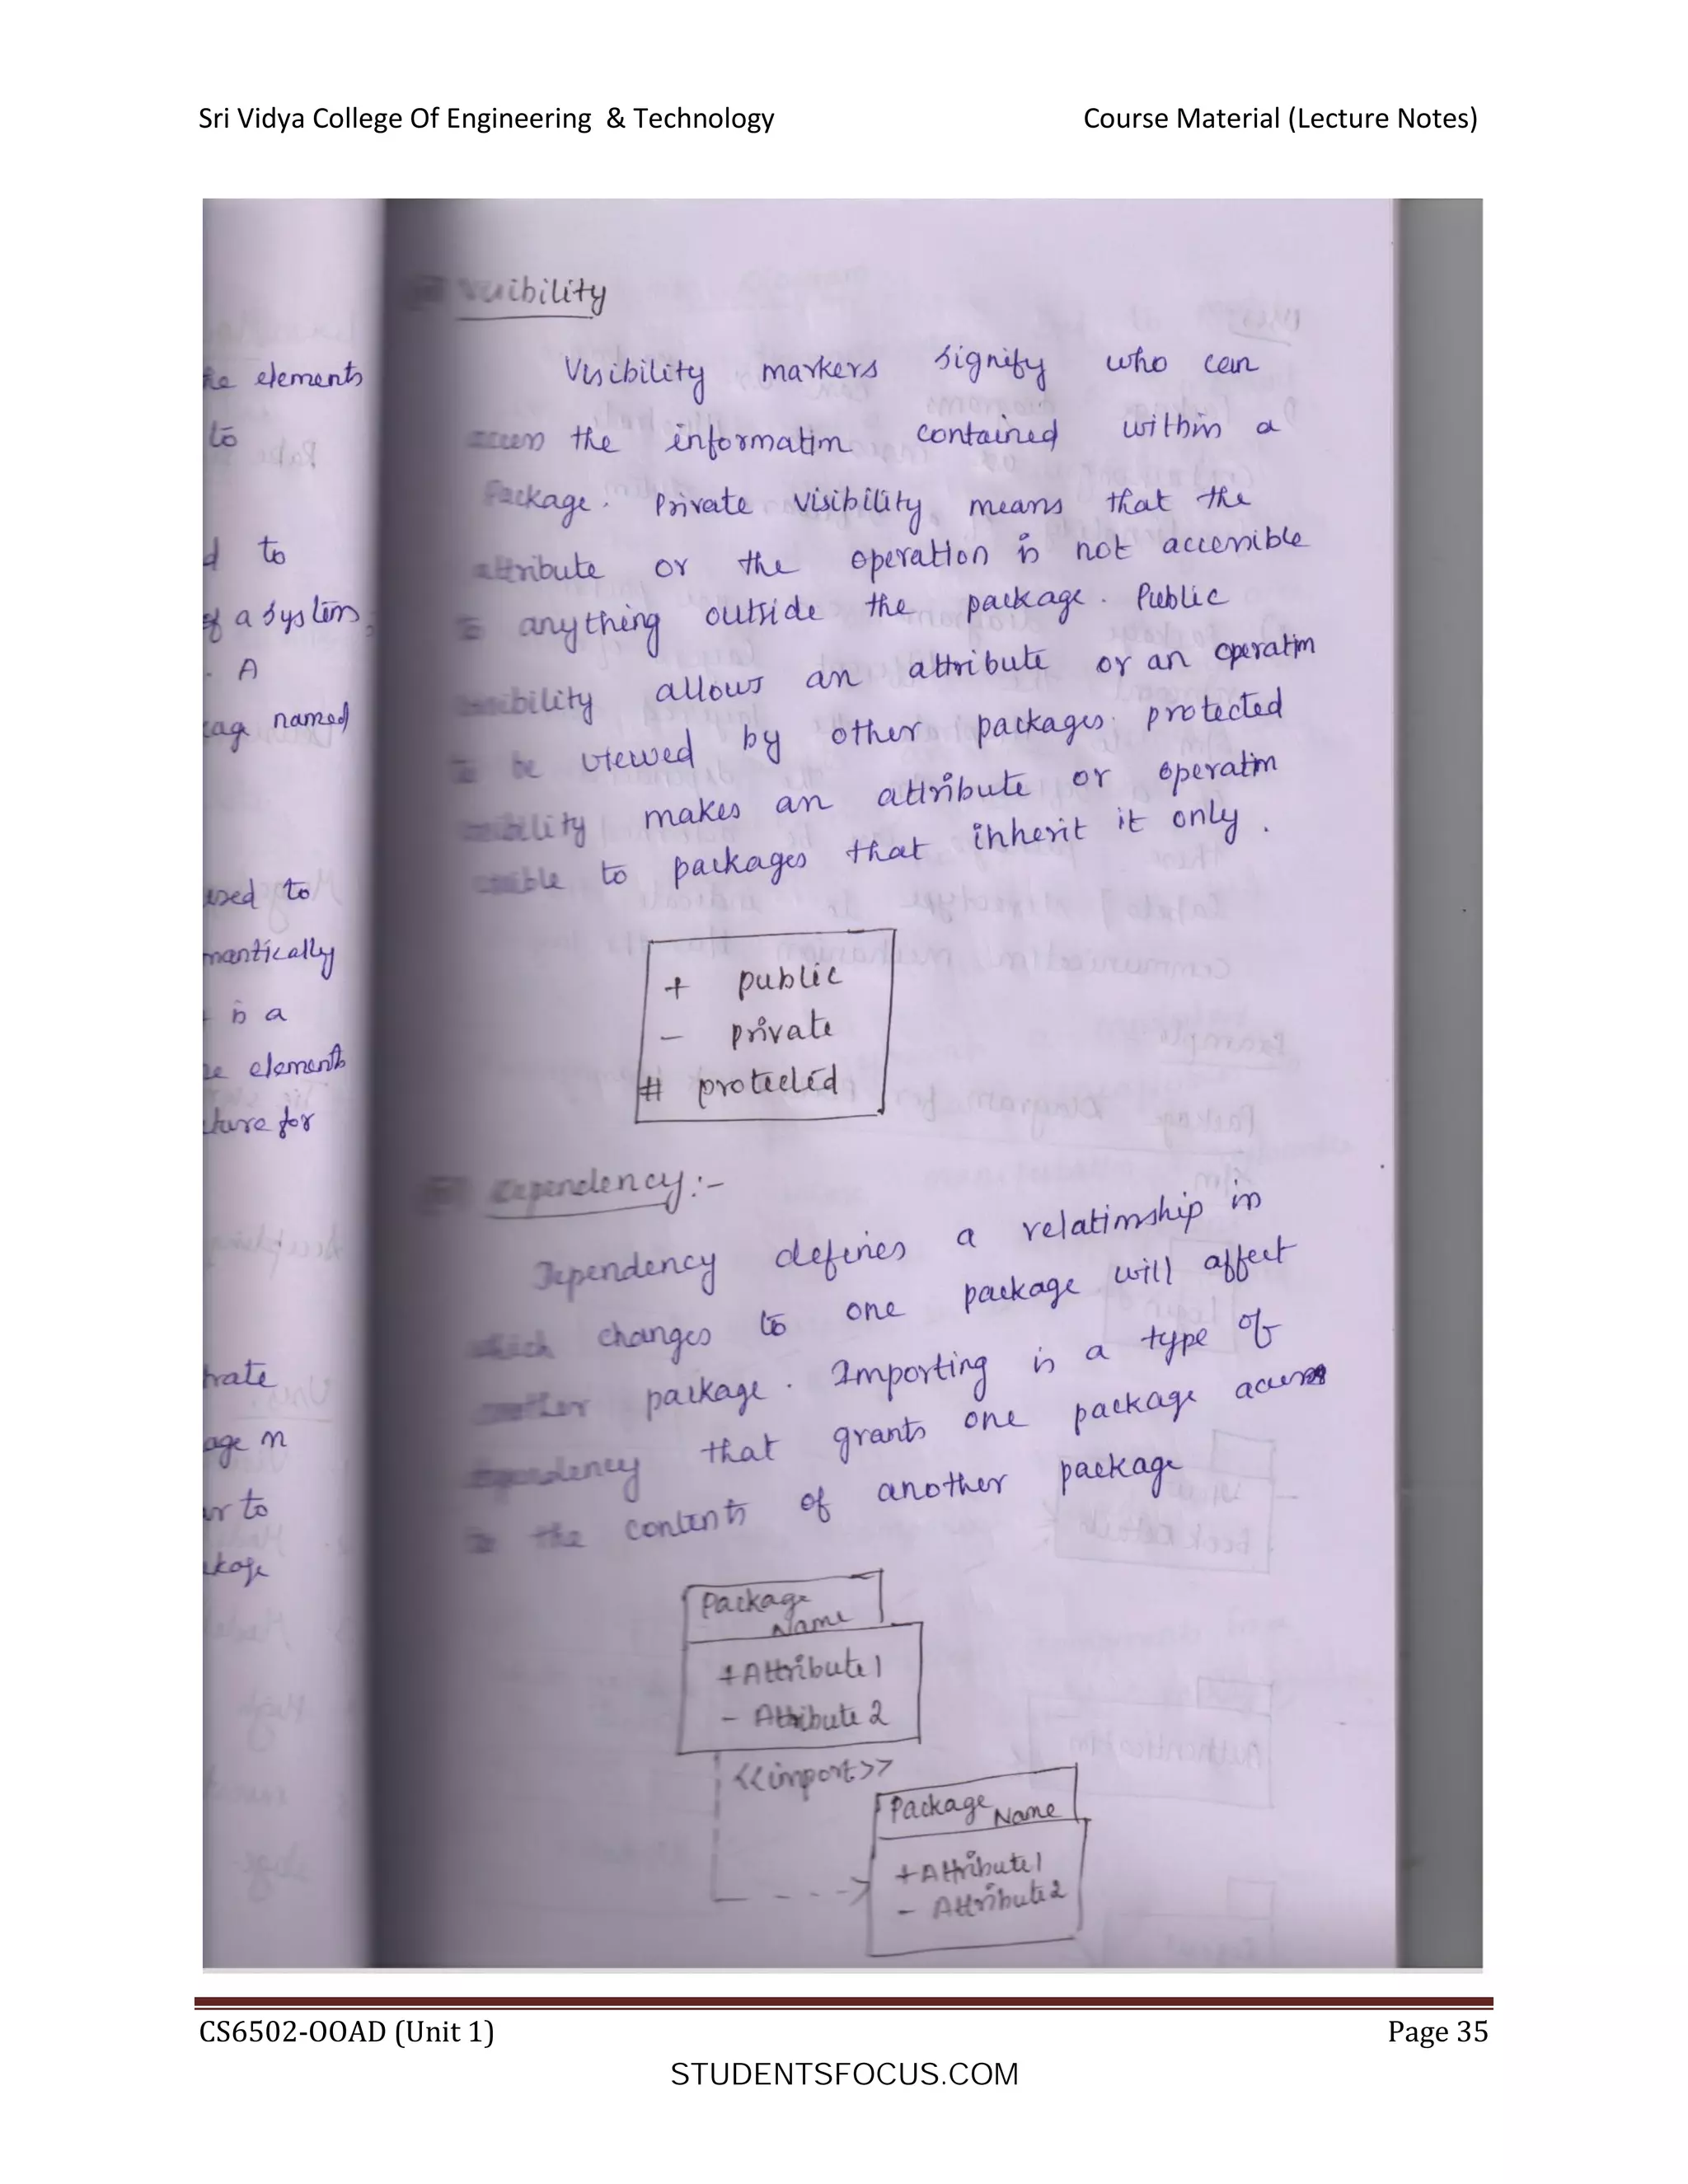 Sri Vidya College Of Engineering & Technology Course Material (Lecture Notes)
he elements
to
d to
of a system
. A
named
used to
mantically
is a
elements
ture for
trate
age n
to
Visibility
Visibility markers signify who can
access the information contained within a
Package. Private visibility means that the
attribute or the operation is not accessible
to anything outside the package. Public
visibility allows an attribute or an operation
to be viewed by other packages. protected
visibility makes an attribute or operation
visible to packages that inherit it only.
+ public
- private
# protected
Dependency:-
Dependency defines a relationship in
which changes to one package will affect
another package. Importing is a type of
dependency that grants one package access
to the contents of another package
Package
Name
+Attribute1
- Attribute 2
<<import>>
Package Name
+Attribute1
- Attribute2
CS6502-OOAD (Unit 1) Page 35
STUDENTSFOCUS.COM